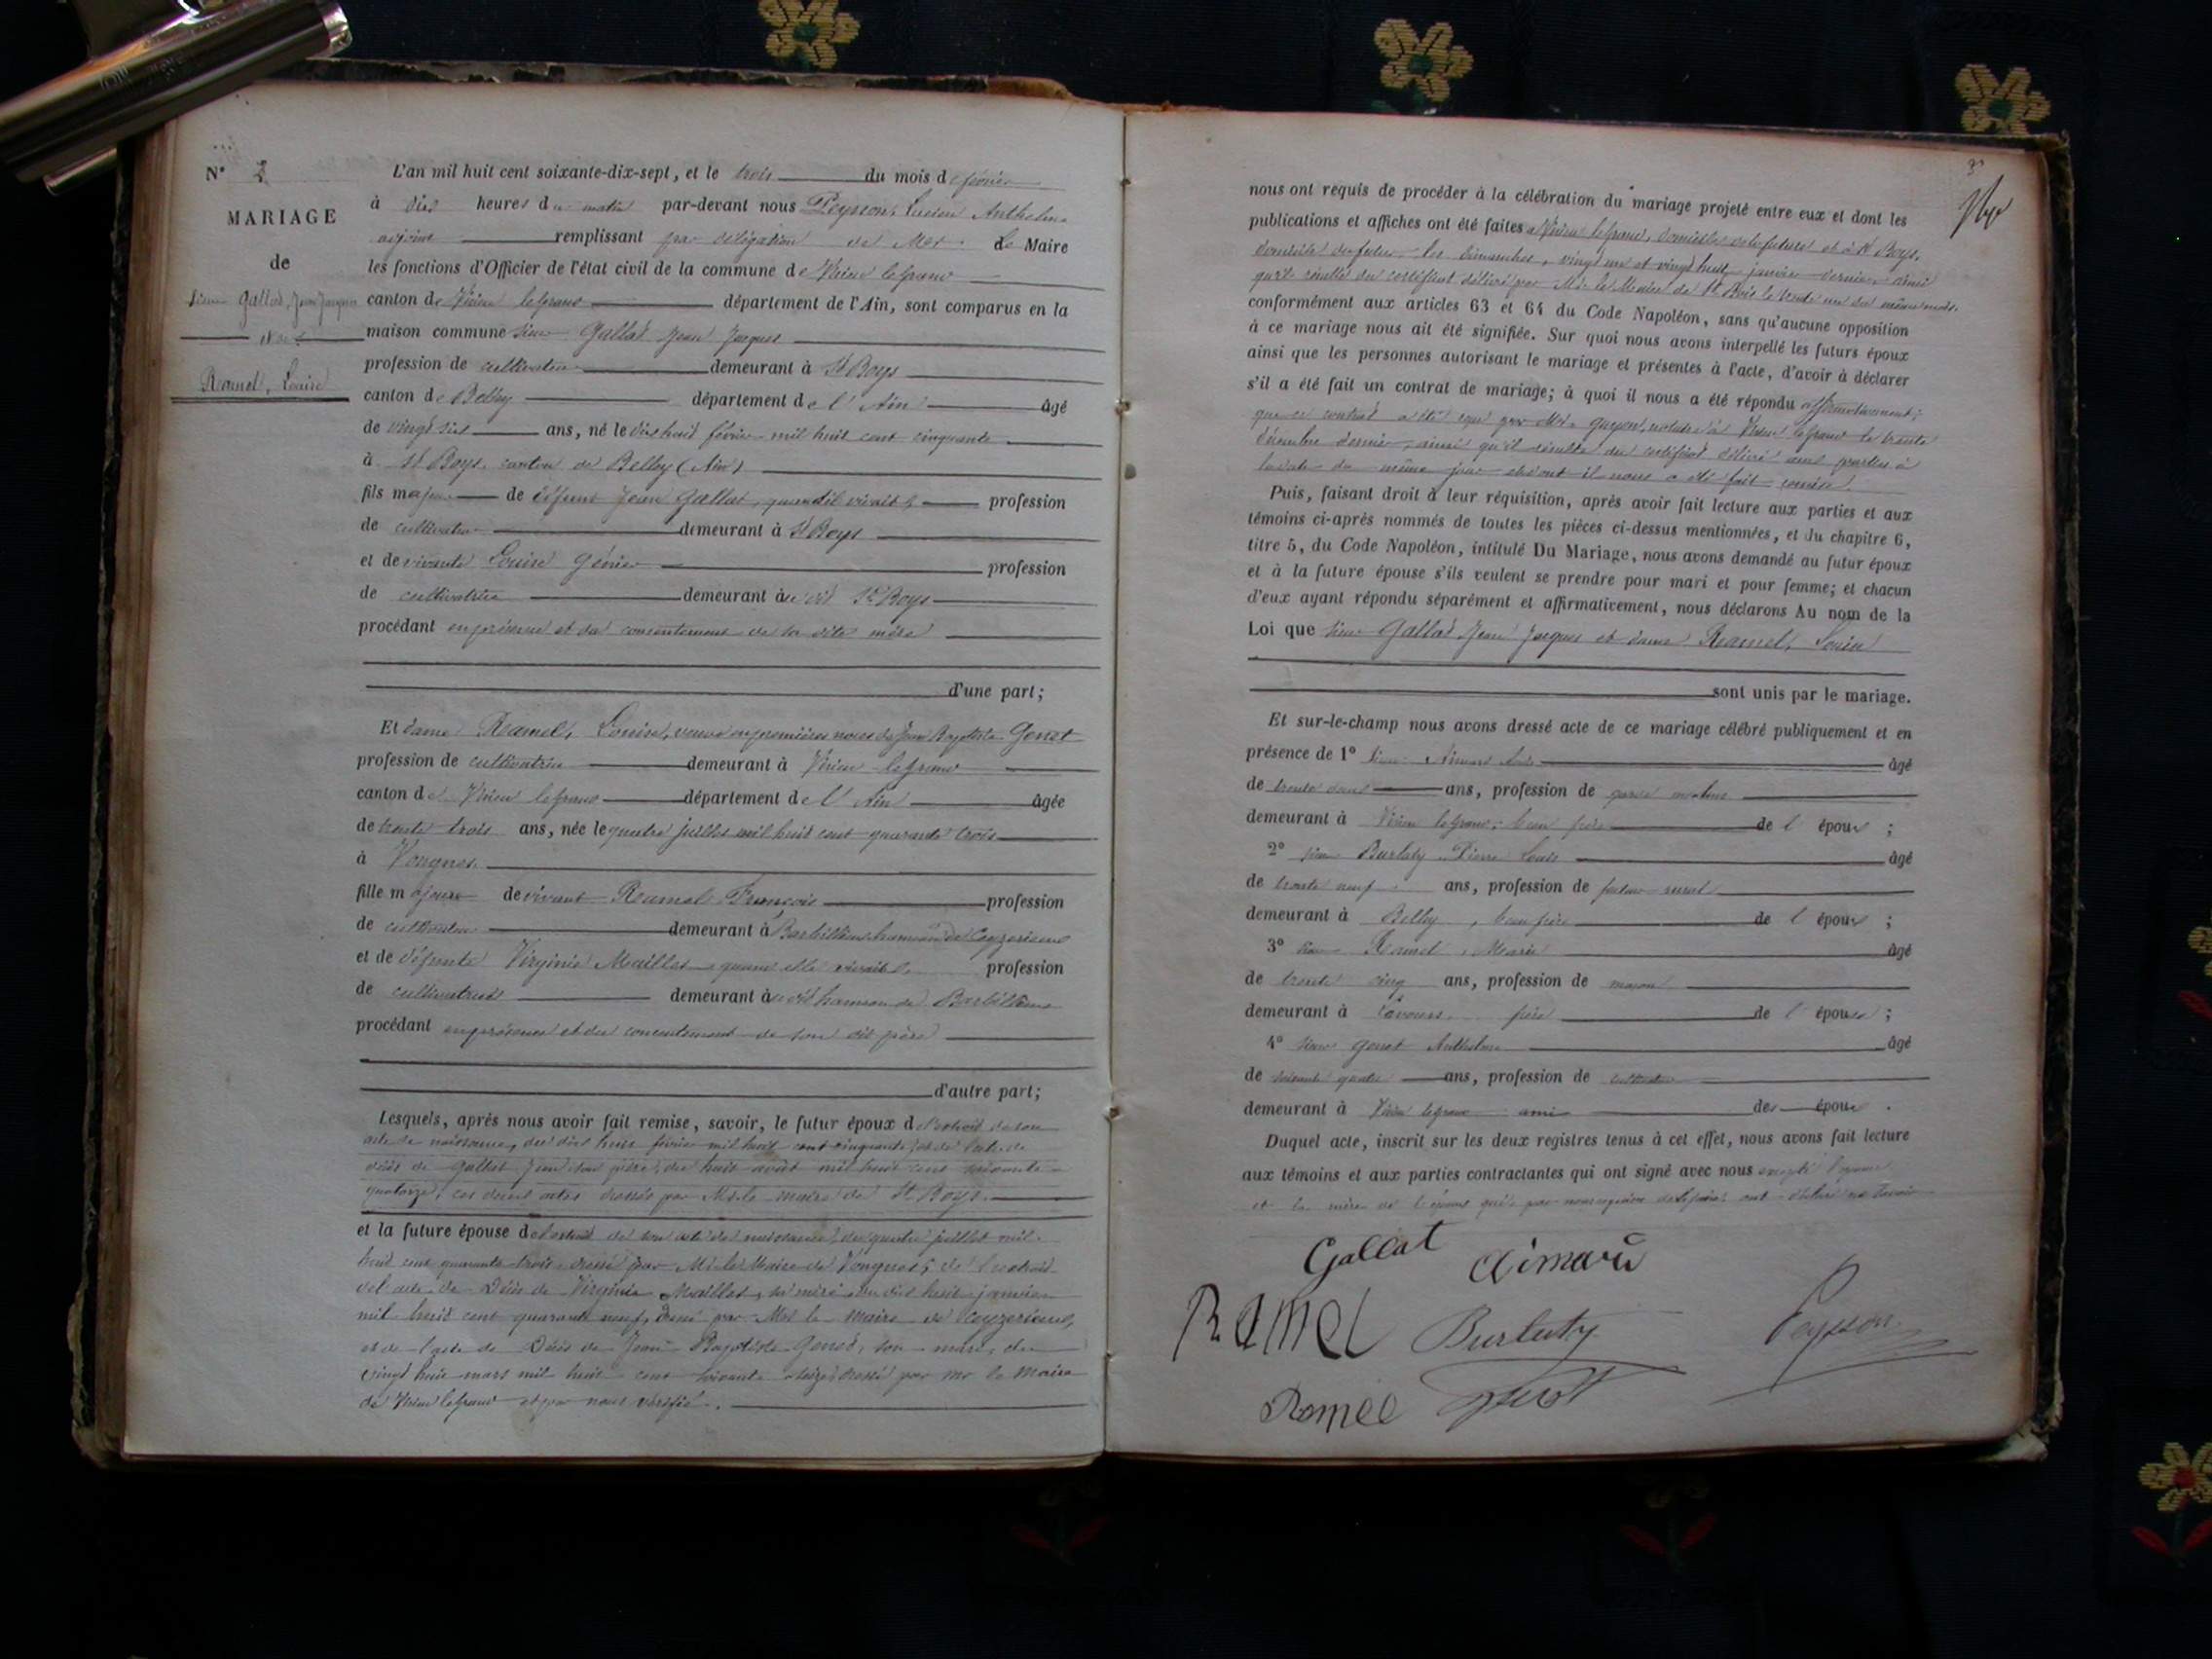 N° 2
MARIAGE
de
Sieur Gallat, Jean Jacques
avec
Ramel, Louise
L'an mil huit cent soixante-dix-sept, et le trois du mois de février
à dix heures du matin par-devant nous Peysson, Lucien Anthelme
adjoint remplissant par délégation de Mr le Maire
les fonctions d'Officier de l'état civil de la commune de Virieu legrand
canton de Virieu legrand département de l'Ain, sont comparus en la
maison commune sieur Gallat Jean Jacques
profession de cultivateur demeurant à St Boys
canton de Belley département de l'Ain âgé
de vingt six ans, né le dix huit février mil huit cent cinquante
à St Boys, canton de Belley (Ain)
fils majeur de défunt Jean Gallat, quand il vivait profession
de cultivateur demeurant à St Boys
et de vivante Louise Génier profession
de cultivatrice demeurant au dit St Boys
procédant en présence et du consentement de sa dite mère
d'une part;
Et dame Ramel, Louise, veuve en premières noces de Jean Baptiste Genet
profession de cultivatrice demeurant à Virieu legrand
canton de Virieu legrand département de l'Ain âgée
de trente trois ans, née le quatre juillet mil huit cent quarante trois
à Vongnes
fille majeure de vivant Ramel François profession
de cultivateur demeurant à hameau de Ceyzerieu
et de défunte Virginie Maillet quand elle vivait profession
de cultivatrice demeurant au dit hameau de
procédant en présence et du consentement de son dit père
d'autre part;
Lesquels, après nous avoir fait remise, savoir, le futur époux de l'extrait de son
acte de naissance, du dix huit février mil huit cent cinquante, et de l'acte de
décès de Gallat Jean son père, du huit août mil huit cent soixante
quatorze, ces deux actes dressés par Mr le maire de St Boys.
et la future épouse de l'extrait de son acte de naissance, du quatre juillet mil
huit cent quarante trois dressé par Mr le Maire de Vongnes; de l'extrait
de l'acte de Décès de Virginie Maillet, sa mère du dix huit janvier
mil huit cent quarante neuf, dressé par Mr le maire de Ceyzerieu,
et de l'acte de Décès de Jean Baptiste Genet, son mari, du
vingt huit mars mil huit cent soixante seize dressé par Mr le Maire
de Virieu legrand et par nous vérifié.
3
nous ont requis de procéder à la célébration du mariage projeté entre eux et dont les
publications et affiches ont été faites à Virieu legrand, domicile de la future et à St Boys,
domicile du futur les dimanches, vingt un et vingt huit janvier dernier, ainsi
qu'il résulte du certificat délivré par Mr le Maire de St Bois le trente un du même mois.
conformément aux articles 63 et 64 du Code Napoléon, sans qu'aucune opposition
à ce mariage nous ait été signifiée. Sur quoi nous avons interpellé les futurs époux
ainsi que les personnes autorisant le mariage et présentes à l'acte, d'avoir à déclarer
s'il a été fait un contrat de mariage; à quoi il nous a été répondu affirmativement;
que ce contrat a été reçu par Me Guyon, notaire à Virieu legrand le trente
décembre dernier, ainsi qu'il résulte du certificat délivré aux parties à
la date du même jour et dont il nous a été fait remise.
Puis, faisant droit à leur réquisition, après avoir fait lecture aux parties et aux
témoins ci-après nommés de toutes les pièces ci-dessus mentionnées, et du chapitre 6,
titre 5, du Code Napoléon, intitulé Du Mariage, nous avons demandé au futur époux
et à la future épouse s'ils veulent se prendre pour mari et pour femme; et chacun
d'eux ayant répondu séparément et affirmativement, nous déclarons Au nom de la
Loi que sieur Gallat Jean Jacques et dame Ramel, Louise
sont unis par le mariage.
Et sur-le-champ nous avons dressé acte de ce mariage célébré publiquement et en
présence de 1° Sieur Aimard âgé
de trente deux ans, profession de garde
demeurant à Virieu legrand; beau frère de l'époux;
2° sieur Burlaty Pierre Louis âgé
de trente neuf ans, profession de facteur rural
demeurant à Belley, beau frère de l'époux;
3° sieur Ramel, Marie âgé
de trente cinq ans, profession de maçon
demeurant à Lavours frère de l'épouse;
4° sieur Genet Anthelme âgé
de soixante quatre ans, profession de cultivateur
demeurant à Virieu legrand ami des époux.
Duquel acte, inscrit sur les deux registres tenus à cet effet, nous avons fait lecture
aux témoins et aux parties contractantes qui ont signé avec nous excepté l'épouse
et la mère de l'époux qui, par nous requises de le faire, ont déclaré ne savoir
Gallat Aimard
Ramel Burlaty Peysson
Ramel Genet